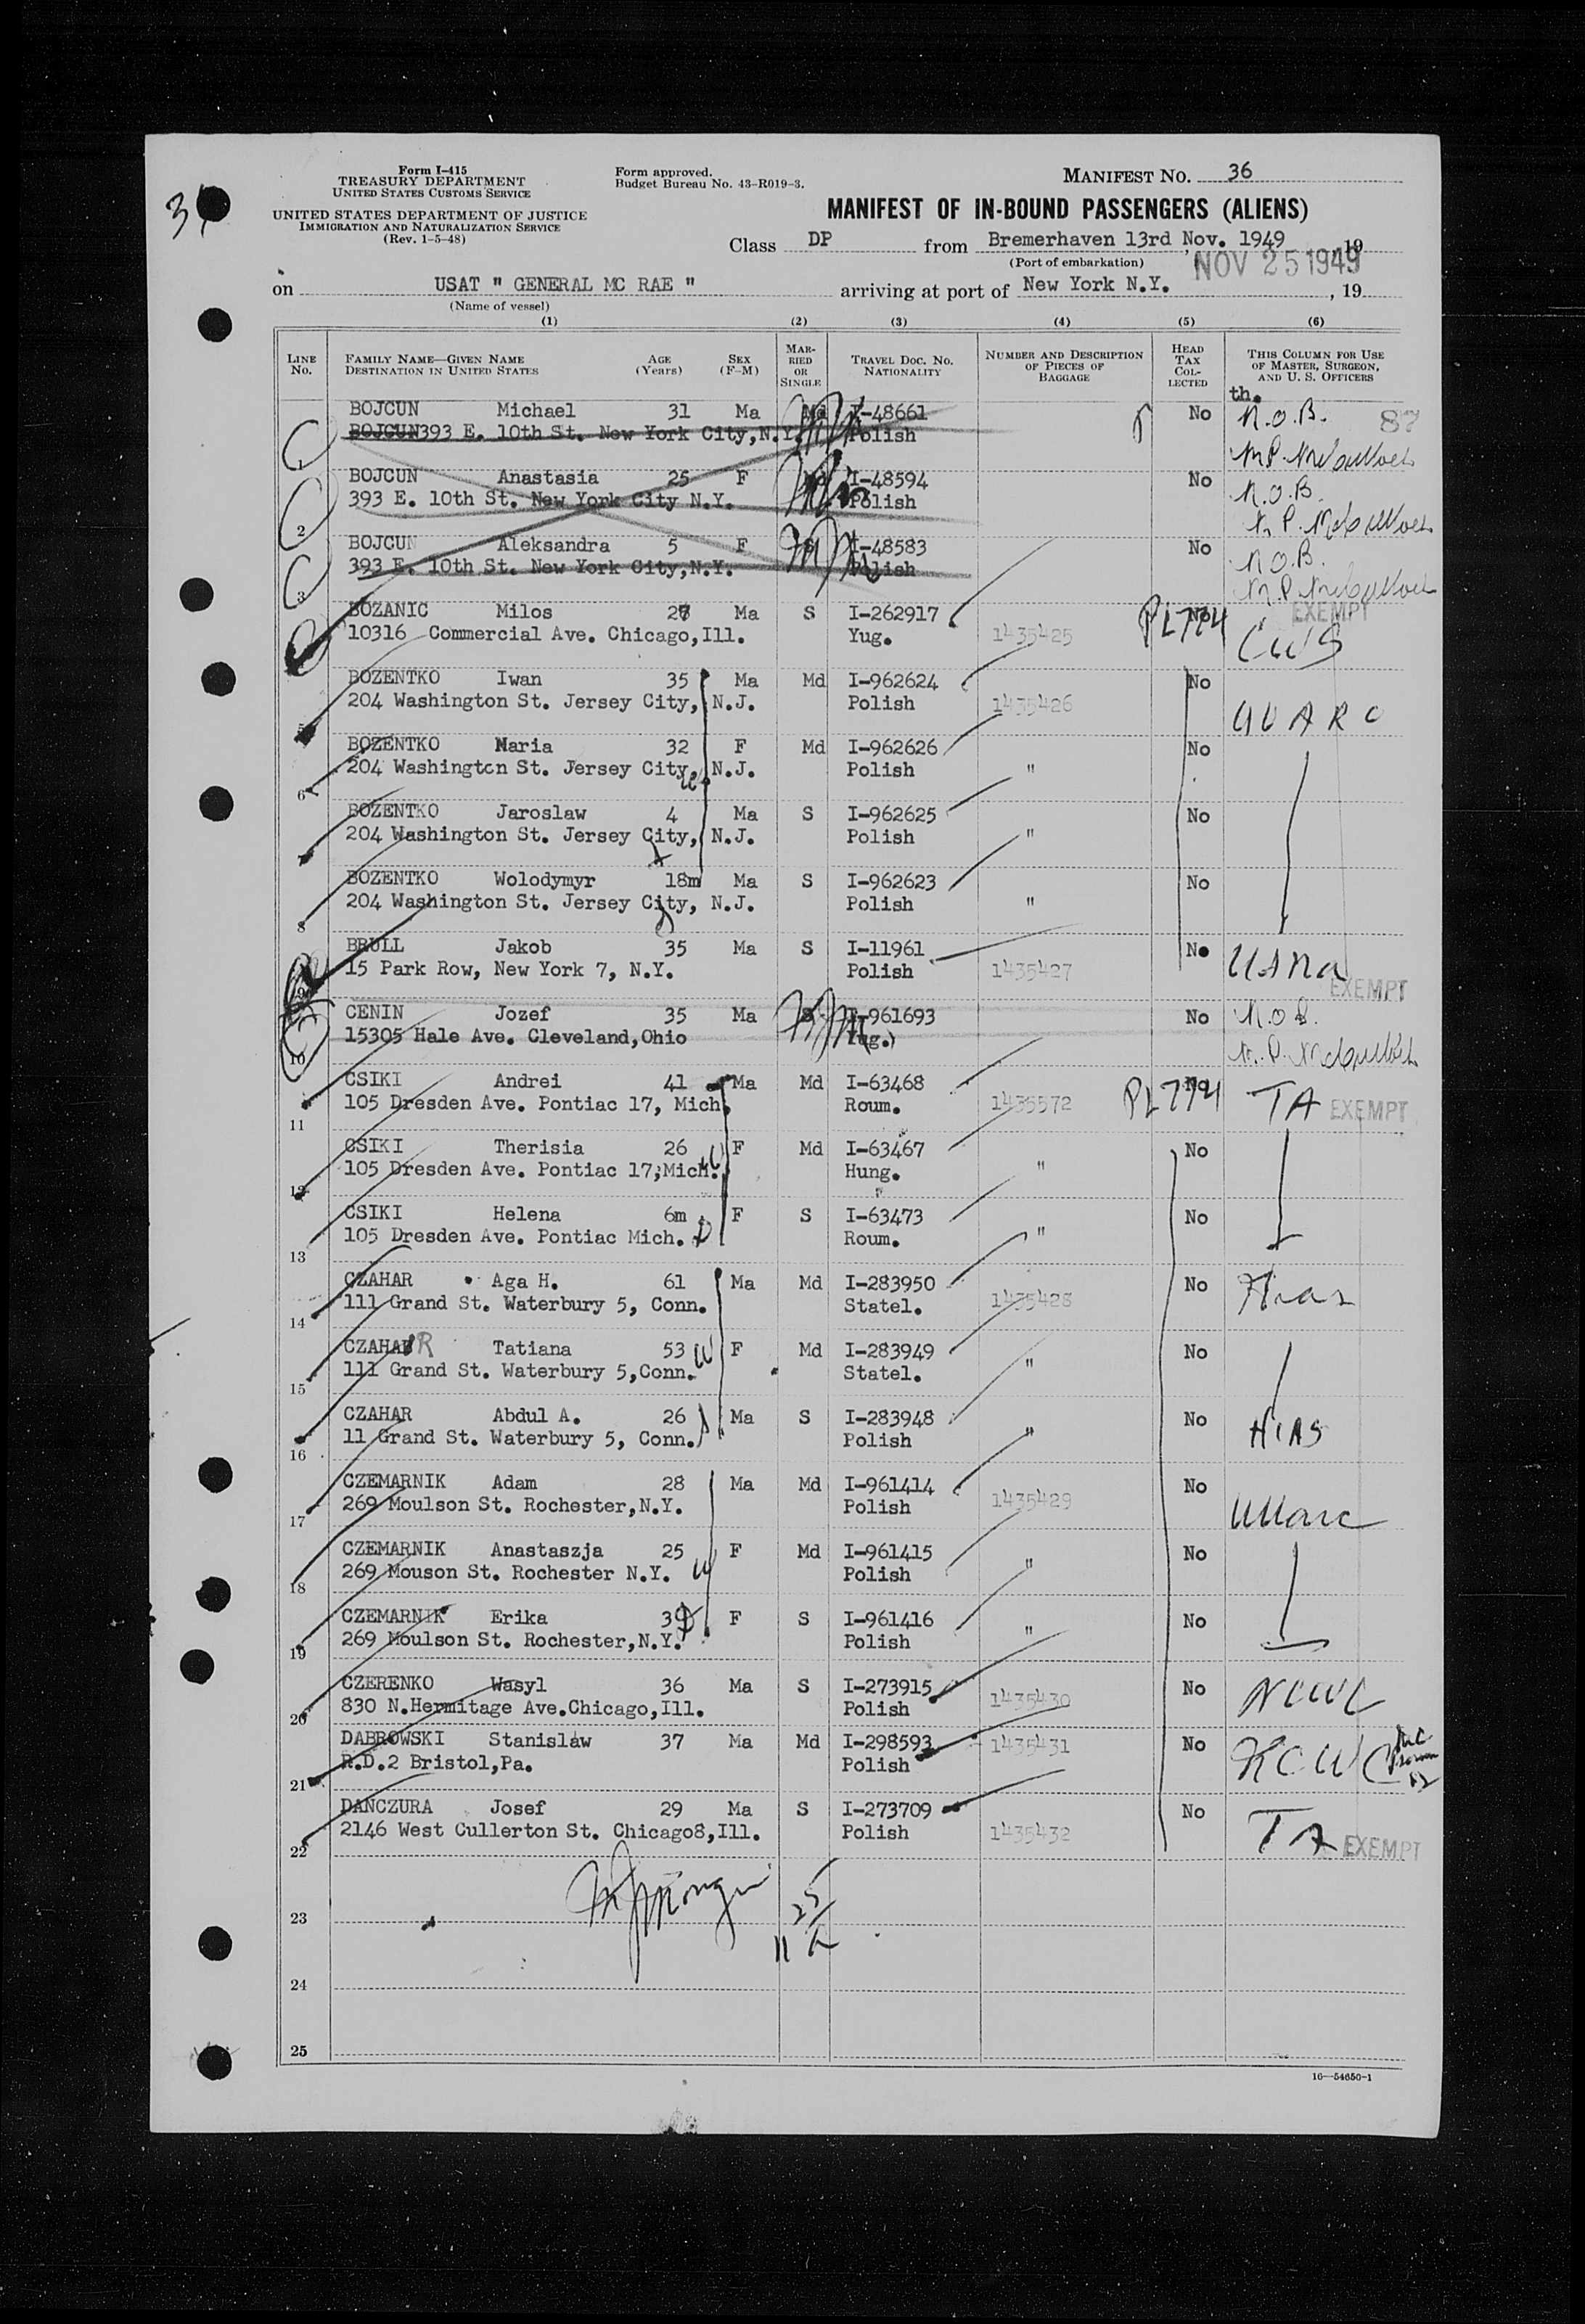 Form I-415
TREASURY DEPARTMENT
UNITED STATES CUSTOMS SERVICE
UNITED STATES DEPARTMENT OF JUSTICE
IMMIGRATION AND NATURALIZATION SERVICE
(Rev. 1-5-48)
Form approved.
Budget Bureau No. 43-R019-3.
MANIFEST NO. 36
MANIFEST OF IN-BOUND PASSENGERS (ALIENS)
Class DP from Bremerhaven 13rd Nov. 1949, 19
(Port of embarkation)
NOV 25 1949
on USAT " GENERAL MC RAE " arriving at port of New York N.Y., 19
(Name of vessel)
(1) (2) (3) (4) (5) (6)
LINE No. FAMILY NAME—GIVEN NAME DESTINATION IN UNITED STATES AGE (Years) SEX (F-M) MARRIED OR SINGLE TRAVEL DOC. NO. NATIONALITY NUMBER AND DESCRIPTION OF PIECES OF BAGGAGE HEAD TAX COLLECTED THIS COLUMN FOR USE OF MASTER, SURGEON, AND U. S. OFFICERS
th.
BOJCUN Michael 31 Ma Md I-48661 No N.O.B. 87
BOJCUN393 E. 10th St. New York City,N.Y. Polish
BOJCUN Anastasia 25 F Md I-48594 No N.O.B.
2 393 E. 10th St. New York City N.Y. Polish
BOJCUN Aleksandra 5 F I-48583 No N.O.B.
3 393 E. 10th St. New York City,N.Y. Polish
BOZANIC Milos 27 Ma S I-262917 PL774 EXEMPT
10316 Commercial Ave. Chicago,Ill. Yug. 1435425 CWS
BOZENTKO Iwan 35 Ma Md I-962624 No
5 204 Washington St. Jersey City, N.J. Polish 1435426
BOZENTKO Maria 32 F Md I-962626 No
6 204 Washington St. Jersey City, N.J. Polish "
BOZENTKO Jaroslaw 4 Ma S I-962625 No
7 204 Washington St. Jersey City, N.J. Polish "
BOZENTKO Wolodymyr 18m Ma S I-962623 No
8 204 Washington St. Jersey City, N.J. Polish "
BRULL Jakob 35 Ma S I-11961 No USNA
9 15 Park Row, New York 7, N.Y. Polish 1435427 EXEMPT
CENIN Jozef 35 Ma S I-961693 No N.O.B.
10 15305 Hale Ave. Cleveland,Ohio Yug.
CSIKI Andrei 41 Ma Md I-63468 PL774 TA EXEMPT
11 105 Dresden Ave. Pontiac 17, Mich. Roum. 1435572
CSIKI Therisia 26 F Md I-63467 No
12 105 Dresden Ave. Pontiac 17,Mich. Hung. "
CSIKI Helena 6m F S I-63473 No
13 105 Dresden Ave. Pontiac Mich. Roum. "
CZAHAR Aga H. 61 Ma Md I-283950 No Hias
14 111 Grand St. Waterbury 5, Conn. Statel. 1435428
CZAHAR Tatiana 53 F Md I-283949 No
15 111 Grand St. Waterbury 5,Conn. Statel. "
CZAHAR Abdul A. 26 Ma S I-283948 No HIAS
16 11 Grand St. Waterbury 5, Conn. Polish "
CZEMARNIK Adam 28 Ma Md I-961414 No
17 269 Moulson St. Rochester,N.Y. Polish 1435429
CZEMARNIK Anastaszja 25 F Md I-961415 No
18 269 Mouson St. Rochester N.Y. Polish "
CZEMARNIK Erika 3 F S I-961416 No
19 269 Moulson St. Rochester,N.Y. Polish "
CZERENKO Wasyl 36 Ma S I-273915 No NCWC
20 830 N.Hermitage Ave.Chicago,Ill. Polish 1435430
DABROWSKI Stanislaw 37 Ma Md I-298593 No
21 R.D.2 Bristol,Pa. Polish 1435431
DANCZURA Josef 29 Ma S I-273709 No TA
22 2146 West Cullerton St. Chicago8,Ill. Polish 1435432 EXEMPT
23
24
25
16—54650-1